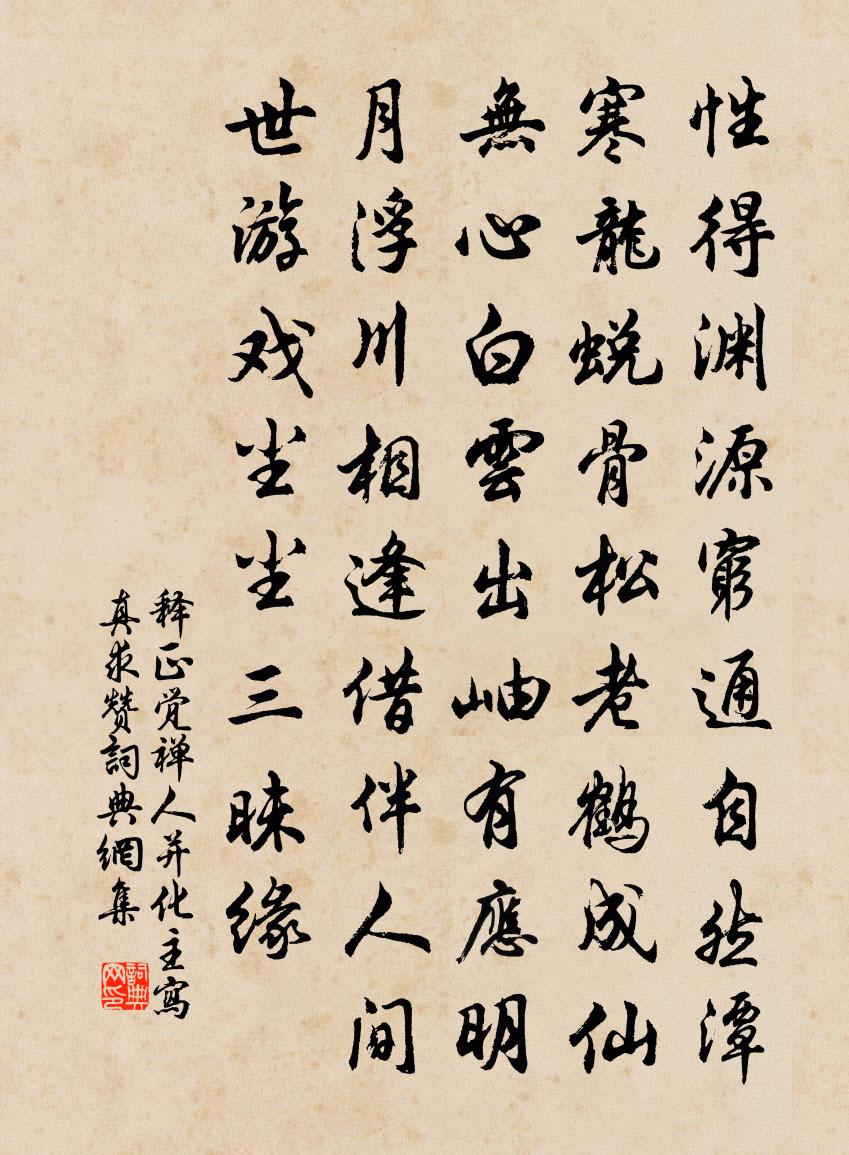 性得渊源窮通自然潭
寒龍蜕骨松老鶴成仙
無心白雲出岫有應明
月浮川相逢借伴人间
世游戏尘尘三昧缘
释正觉禅人并化主寫
真求赞詞典網集
詞典网印